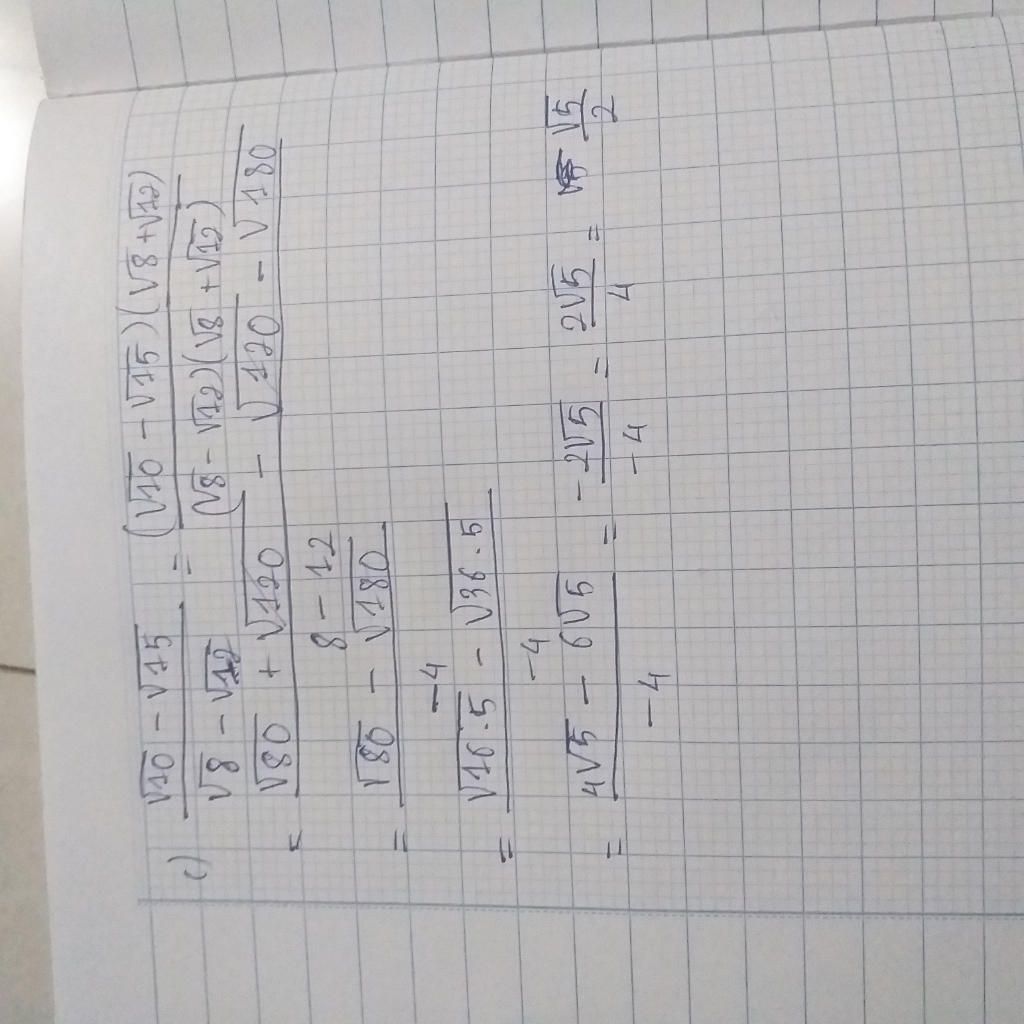 c) (√10 - √15)/(√8 - √12) = ((√10 - √15)(√8 + √12))/((√8 - √12)(√8 + √12))
= (√80 + √120 - √120 - √180)/(8 - 12)
= (√80 - √180)/(-4)
= (√16.5 - √36.5)/(-4)
= (4√5 - 6√5)/(-4) = (-2√5)/(-4) = (2√5)/4 = √5/2